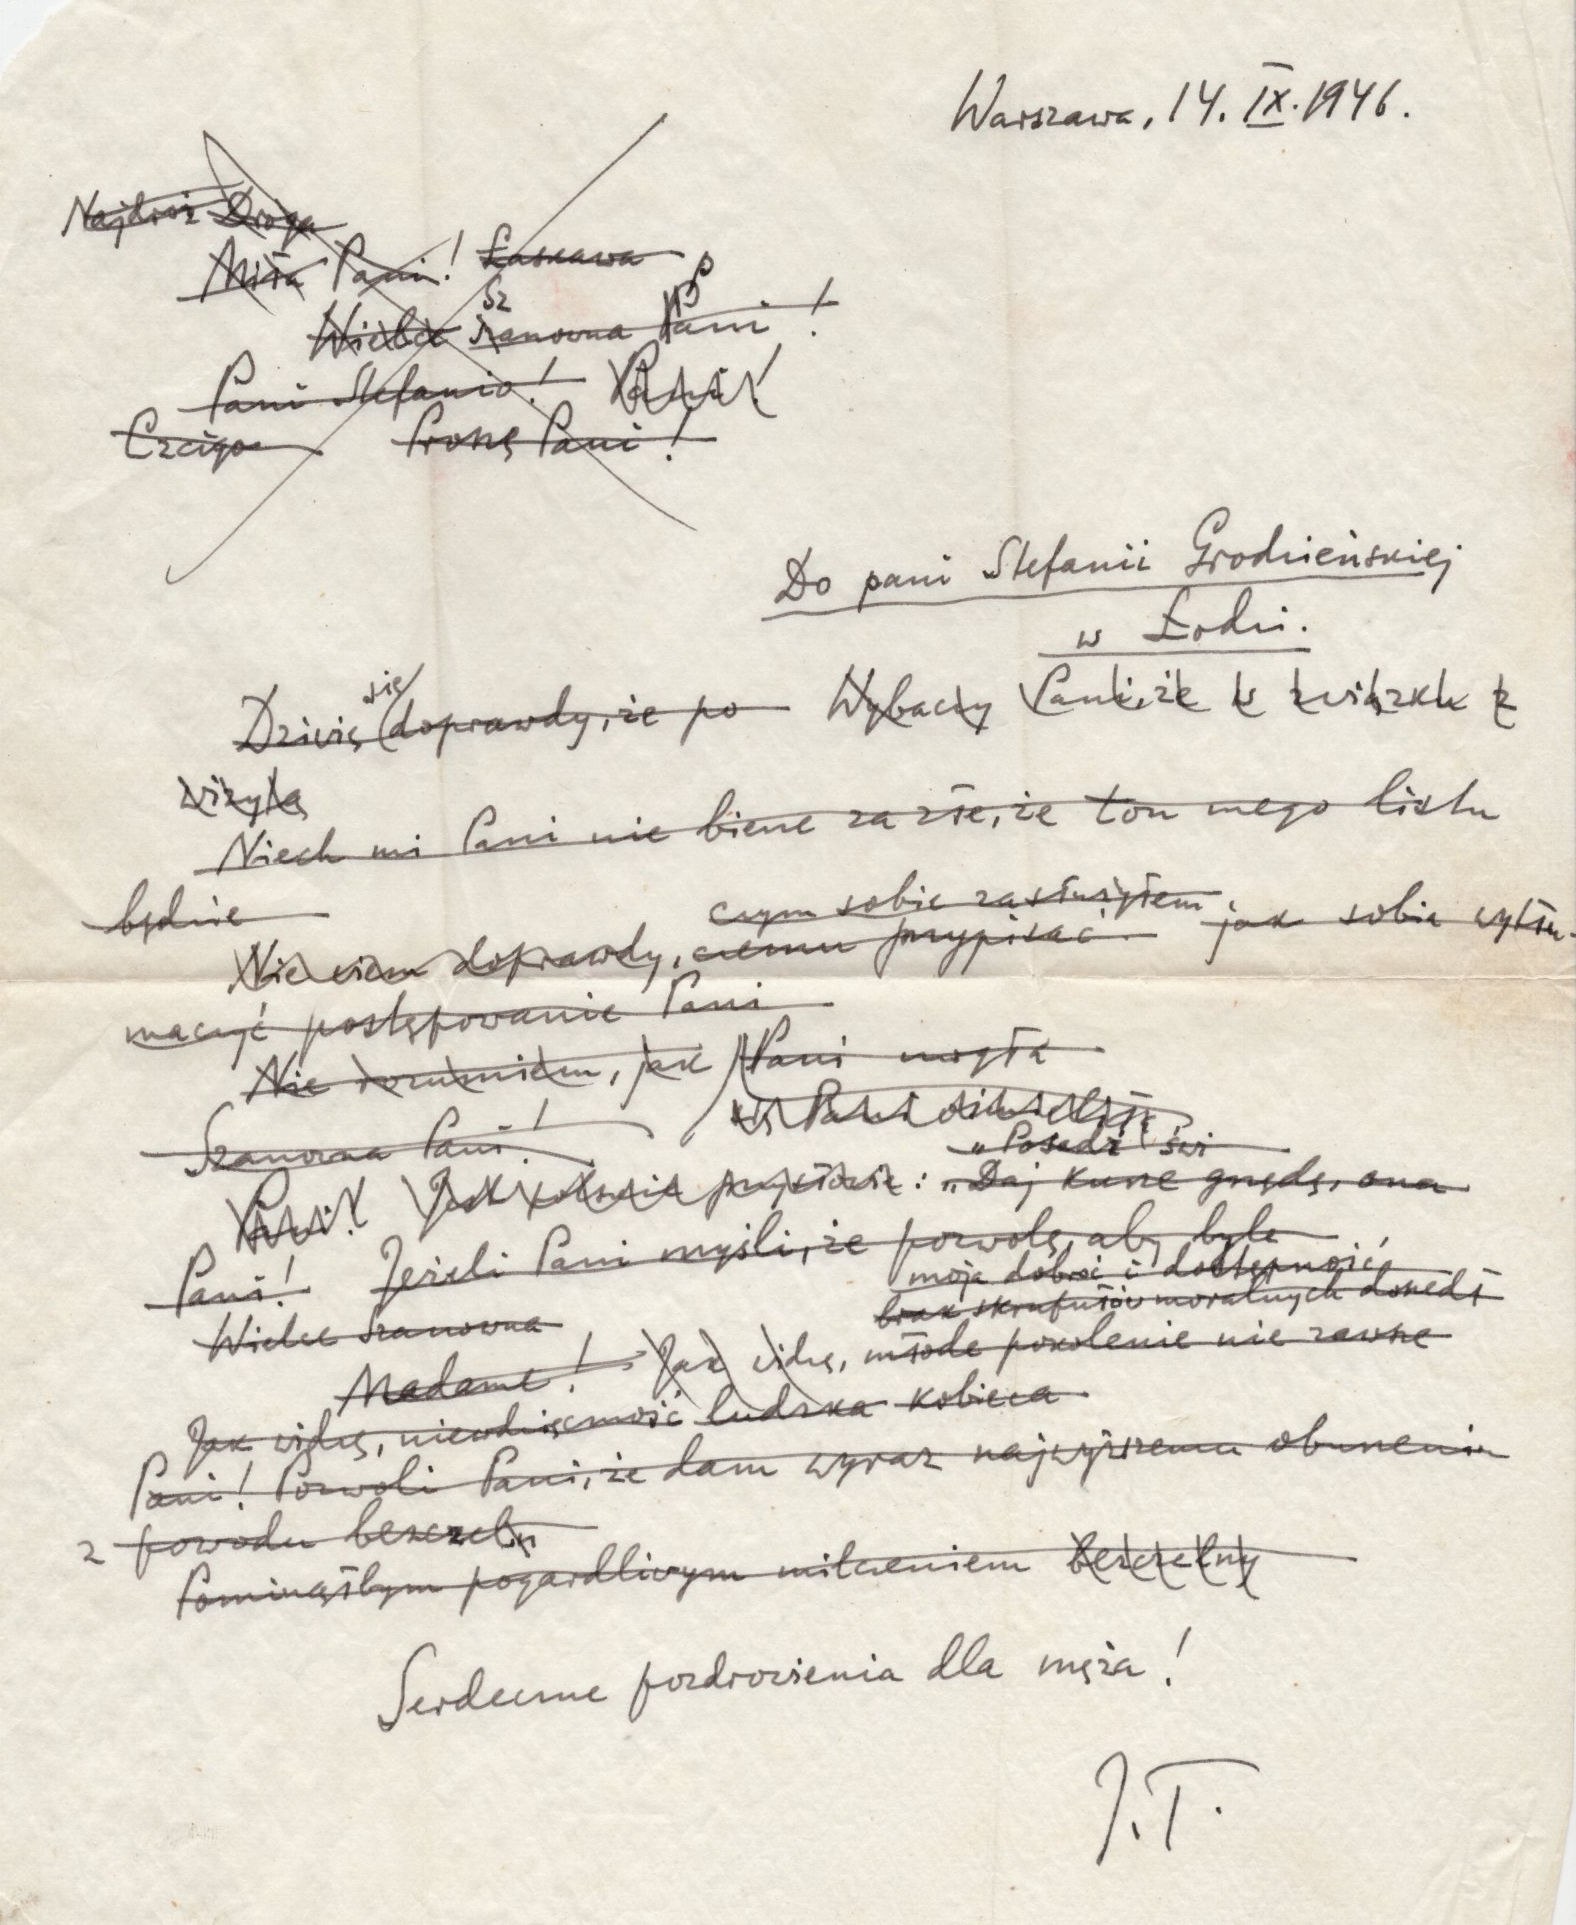 Warszawa, 14. IX. 1946.
Najdroż Droga
Miła Pani! Łaskawa
Wielce Szanowna Pani!
Pani Stefanio! Pani!
Czcigo Proszę Pani!
Do pani Stefanii Grodzieńskiej
w Łodzi.
Dziwię się doprawdy, że po Wybaczy Pani, że w związku z
wizytą
Niech mi Pani nie bierze za złe, że ton mego listu
będzie
czym sobie zasłużyłem
Nie wiem doprawdy, czemu przypisać jak sobie wytłu-
maczyć postępowanie Pani
Nie rozumiem, jak Pani mogła
Pani
Szanowna Pani!
"Posadź świ
Pani! Jak przysłowie: "Daj kurze grzędę, ona
Pani! Jeżeli Pani myśli, że pozwolę, aby byle
moja dobroć i dostępność
brak skrupułów moralnych doszedł
Wielce Szanowna
Madame! Jak widzę, młode pokolenie nie zawsze
Jak widzę, niewdzięczność ludzka kobieca
Pani! Pozwoli Pani, że dam wyraz najwyższemu oburzeniu
z powodu bezczeln
Pominąłbym pogardliwym milczeniem bezczelny
Serdeczne pozdrowienia dla męża!
J.T.